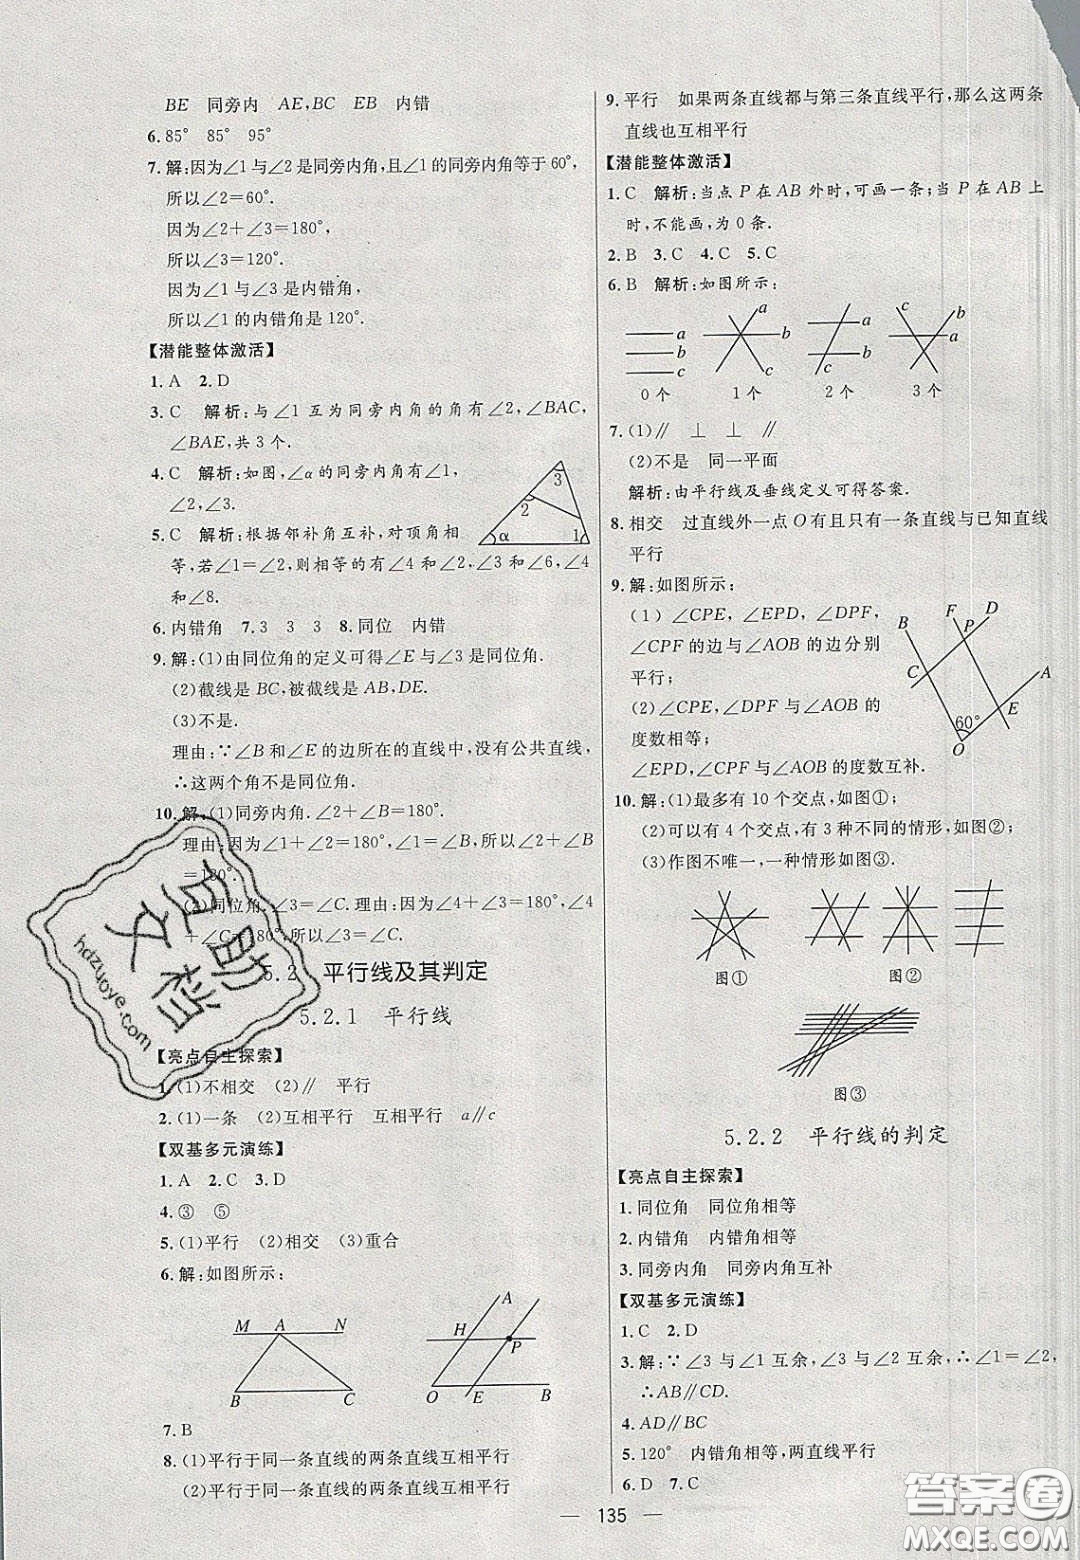 BE 同旁内 AE,BC EB 内错
6.85° 85° 95°
7.解:因为∠1与∠2是同旁内角,且∠1的同旁内角等于60°,
所以∠2=60°.
因为∠2+∠3=180°,
所以∠3=120°.
因为∠1与∠3是内错角,
所以∠1的内错角是120°.
【潜能整体激活】
1.A 2.D
3.C 解析:与∠1互为同旁内角的角有∠2,∠BAC,
∠BAE,共3个.
4.C 解析:如图,∠α的同旁内角有∠1,
∠2,∠3.
3
2
α
1
5.C 解析:根据邻补角互补,对顶角相
等,若∠1=∠2,则相等的有∠4和∠2,∠3和∠6,∠4
和∠8.
6.内错角 7.3 3 3 8.同位 内错
9.解:(1)由同位角的定义可得∠E与∠3是同位角.
(2)截线是BC,被截线是AB,DE.
(3)不是.
理由:∵∠B和∠E的边所在的直线中,没有公共直线,
∴这两个角不是同位角.
10.解:(1)同旁内角.∠2+∠B=180°.
理由:因为∠1+∠2=180°,∠1=∠B,所以∠2+∠B
=180°.
(2)同位角.∠3=∠C.理由:因为∠4+∠3=180°,∠4
+∠C=180°,所以∠3=∠C.
5.2 平行线及其判定
5.2.1 平行线
【亮点自主探索】
1.(1)不相交 (2)∥ 平行
2.(1)一条 (2)互相平行 互相平行 a∥c
【双基多元演练】
1.A 2.C 3.D
4.③ ⑤
5.(1)平行 (2)相交 (3)重合
6.解:如图所示:
M A N
B C
A
H P
O E B
7.B
8.(1)平行于同一条直线的两条直线互相平行
(2)平行于同一条直线的两条直线互相平行
9.平行 如果两条直线都与第三条直线平行,那么这两条
直线也互相平行
【潜能整体激活】
1.C 解析:当点P在AB外时,可画一条;当P在AB上
时,不能画,为0条.
2.B 3.C 4.C 5.C
6.B 解析:如图所示:
a
b
c
0个
a
b
c
1个
c
a
b
2个
c
b
a
3个
7.(1)∥ ⊥ ⊥ ∥
(2)不是 同一平面
解析:由平行线及垂线定义可得答案.
8.相交 过直线外一点O有且只有一条直线与已知直线
平行
9.解:如图所示:
(1)∠CPE,∠EPD,∠DPF,
∠CPF的边与∠AOB的边分别
平行;
(2)∠CPE,∠DPF与∠AOB的
度数相等;
∠EPD,∠CPF与∠AOB的度数互补.
B F P D
C A
E
60°
O
10.解:(1)最多有10个交点,如图①;
(2)可以有4个交点,有3种不同的情形,如图②;
(3)作图不唯一,一种情形如图③.
图① 图②
图③
5.2.2 平行线的判定
【亮点自主探索】
1.同位角 同位角相等
2.内错角 内错角相等
3.同旁内角 同旁内角互补
【双基多元演练】
1.C 2.D
3.解:∵∠3与∠1互余,∠3与∠2互余,∴∠1=∠2,
∴AB∥CD.
4.AD∥BC
5.120° 内错角相等,两直线平行
6.D 7.C
— 135 —
百助文档
hdzuoye.com
答案圈
MXQE.COM